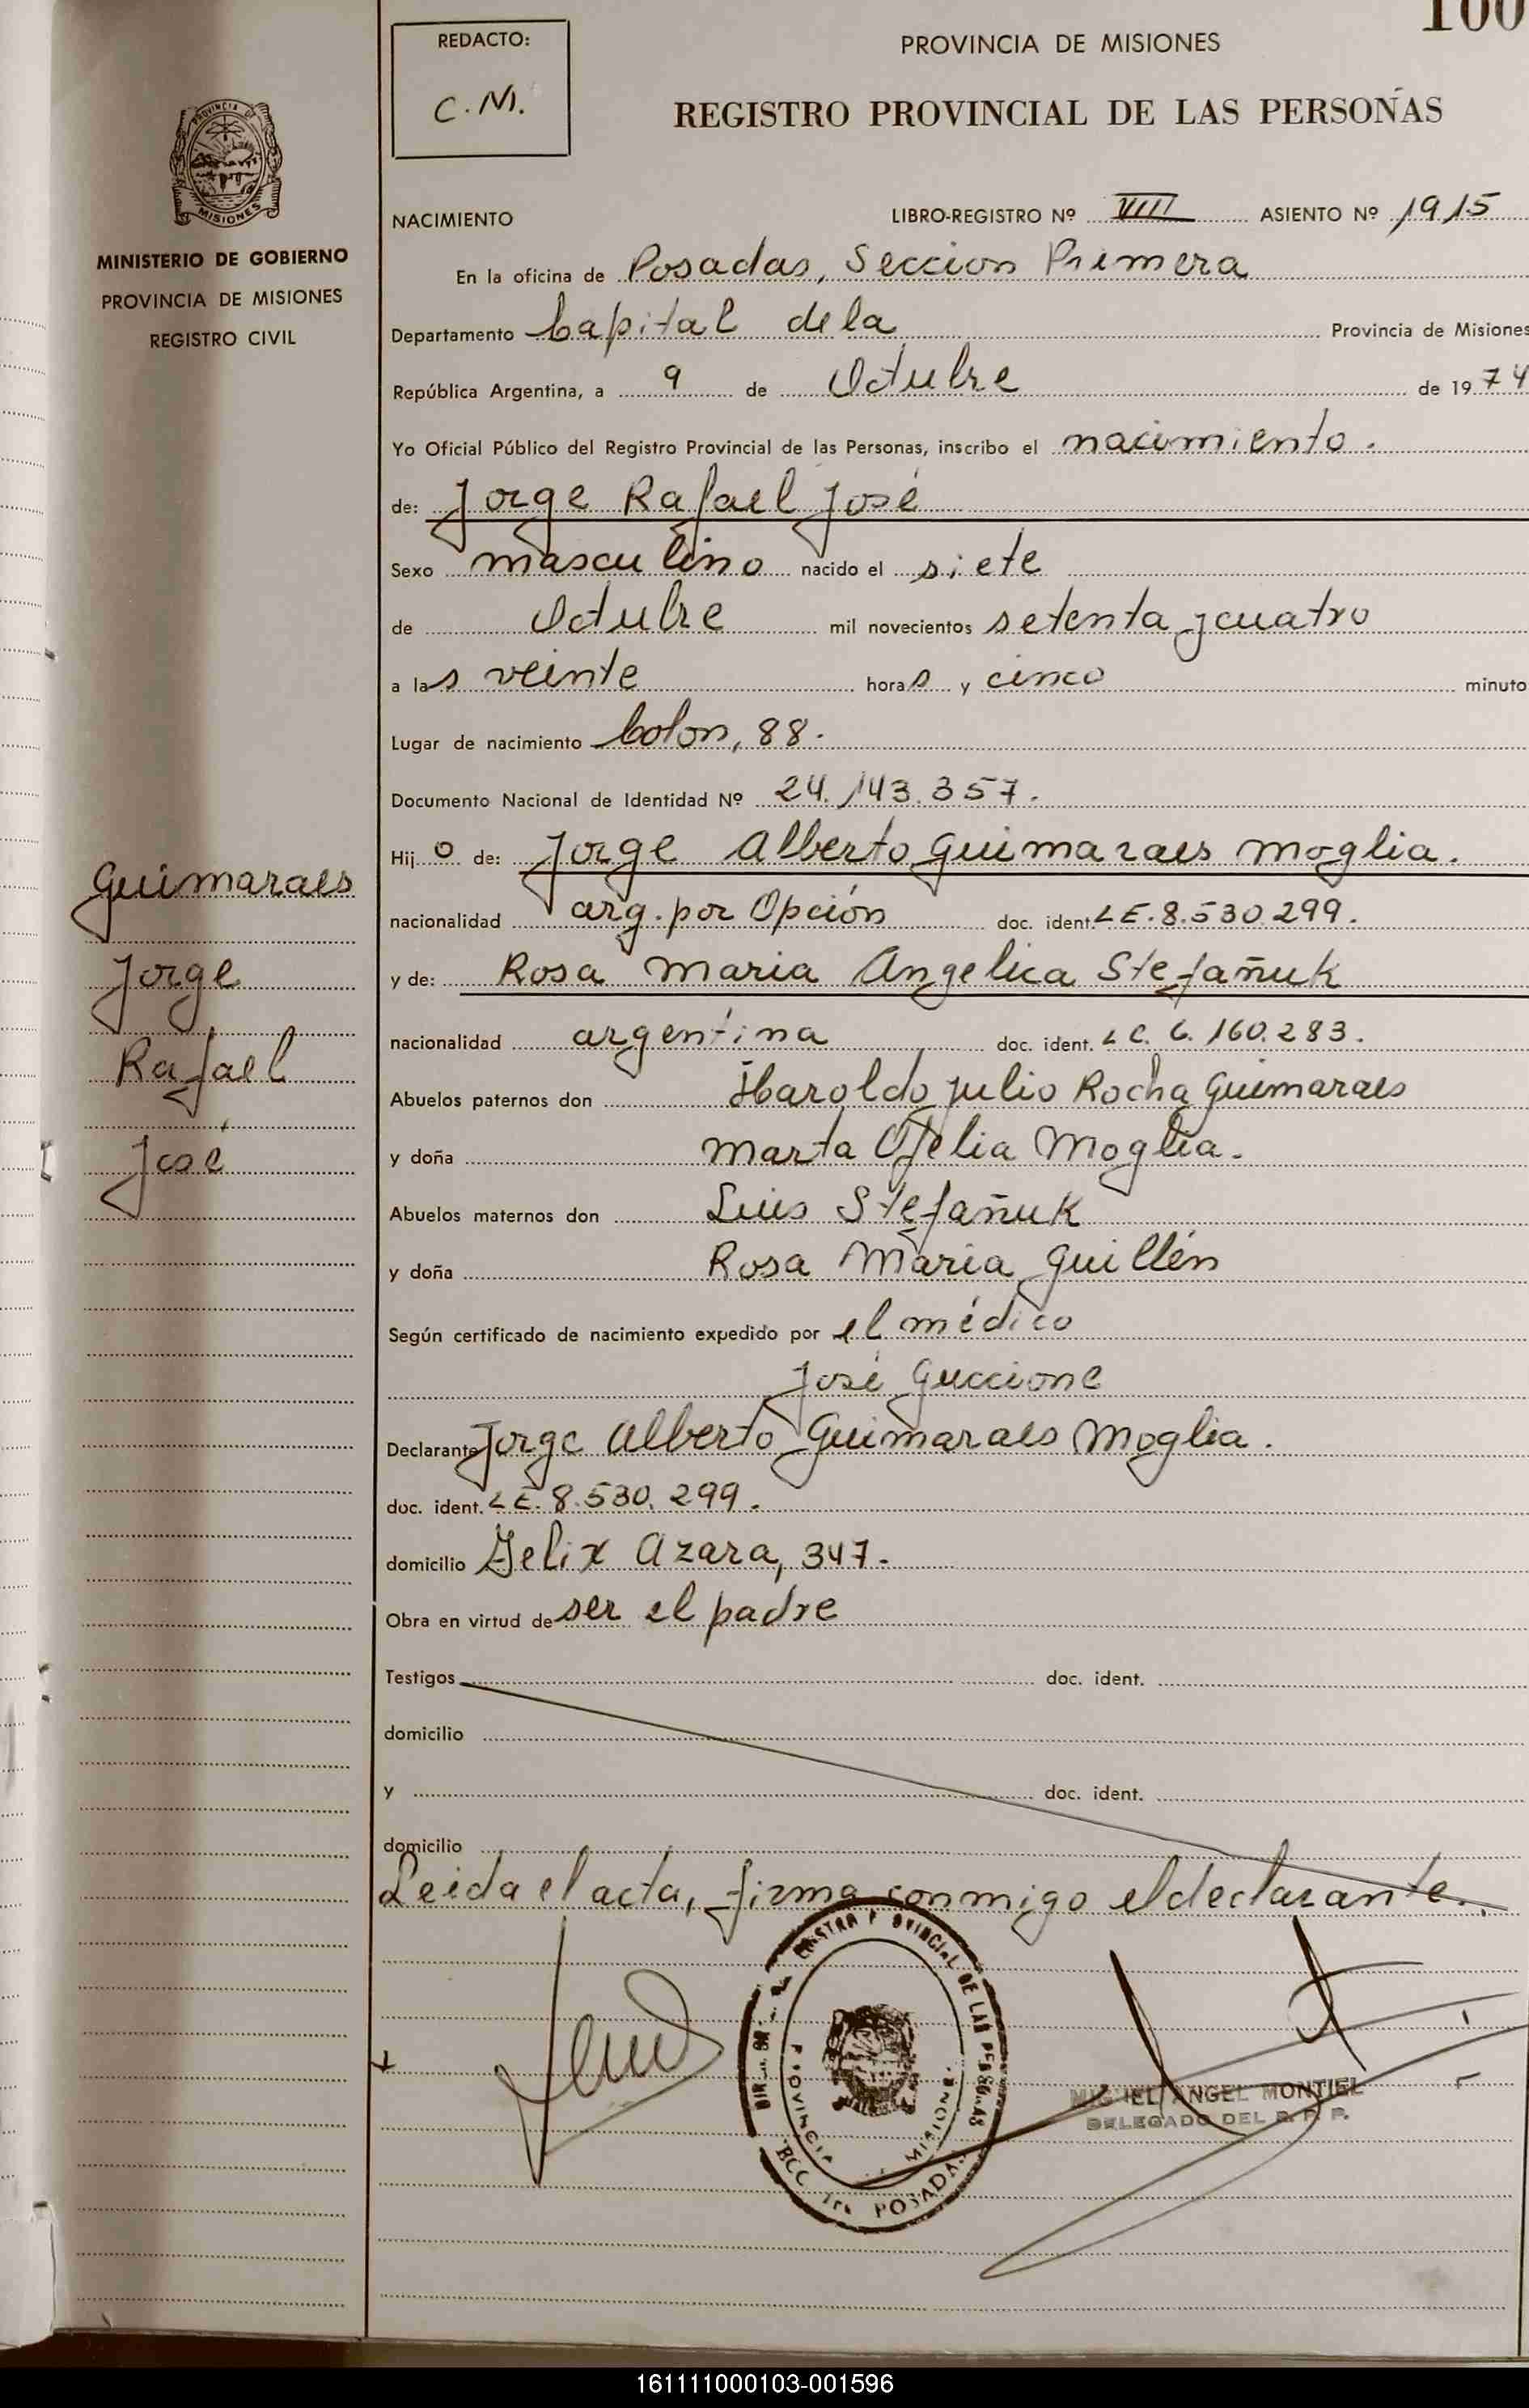 100
REDACTO:
C.M.
PROVINCIA DE MISIONES
REGISTRO PROVINCIAL DE LAS PERSONAS
PROVINCIA DE
MISIONES
MINISTERIO DE GOBIERNO
PROVINCIA DE MISIONES
REGISTRO CIVIL
NACIMIENTO
LIBRO-REGISTRO Nº VIII ASIENTO Nº 1915
En la oficina de Posadas, Seccion Primera
Departamento Capital de la Provincia de Misiones
República Argentina, a 9 de Octubre de 1974
Yo Oficial Público del Registro Provincial de las Personas, inscribo el nacimiento.
de: Jorge Rafael José
Sexo masculino nacido el siete
de Octubre mil novecientos setenta y cuatro
a las veinte horas y cinco minuto
Lugar de nacimiento Colon, 88.
Documento Nacional de Identidad Nº 24.143.357.
Hijo de: Jorge Alberto Guimaraes Moglia.
nacionalidad arg. por Opción doc. ident. LE. 8.530.299.
y de: Rosa Maria Angelica Stefañuk
nacionalidad argentina doc. ident. LC. 6.160.283.
Abuelos paternos don Haroldo Julio Rocha Guimaraes
y doña Marta Ofelia Moglia.
Abuelos maternos don Luis Stefañuk
y doña Rosa Maria Guillén
Según certificado de nacimiento expedido por el médico
José Guccione
Declarante Jorge Alberto Guimaraes Moglia.
doc. ident. LE. 8.530.299.
domicilio Felix Azara, 347.
Obra en virtud de ser el padre
Testigos doc. ident.
domicilio
y doc. ident.
domicilio
Leida el acta, firma conmigo el declarante.
Guimaraes
Jorge
Rafael
José
PROVINCIA MISIONES
POSADAS
MIGUEL ANGEL MONTIEL
DELEGADO DEL R. P. P.
161111000103-001596